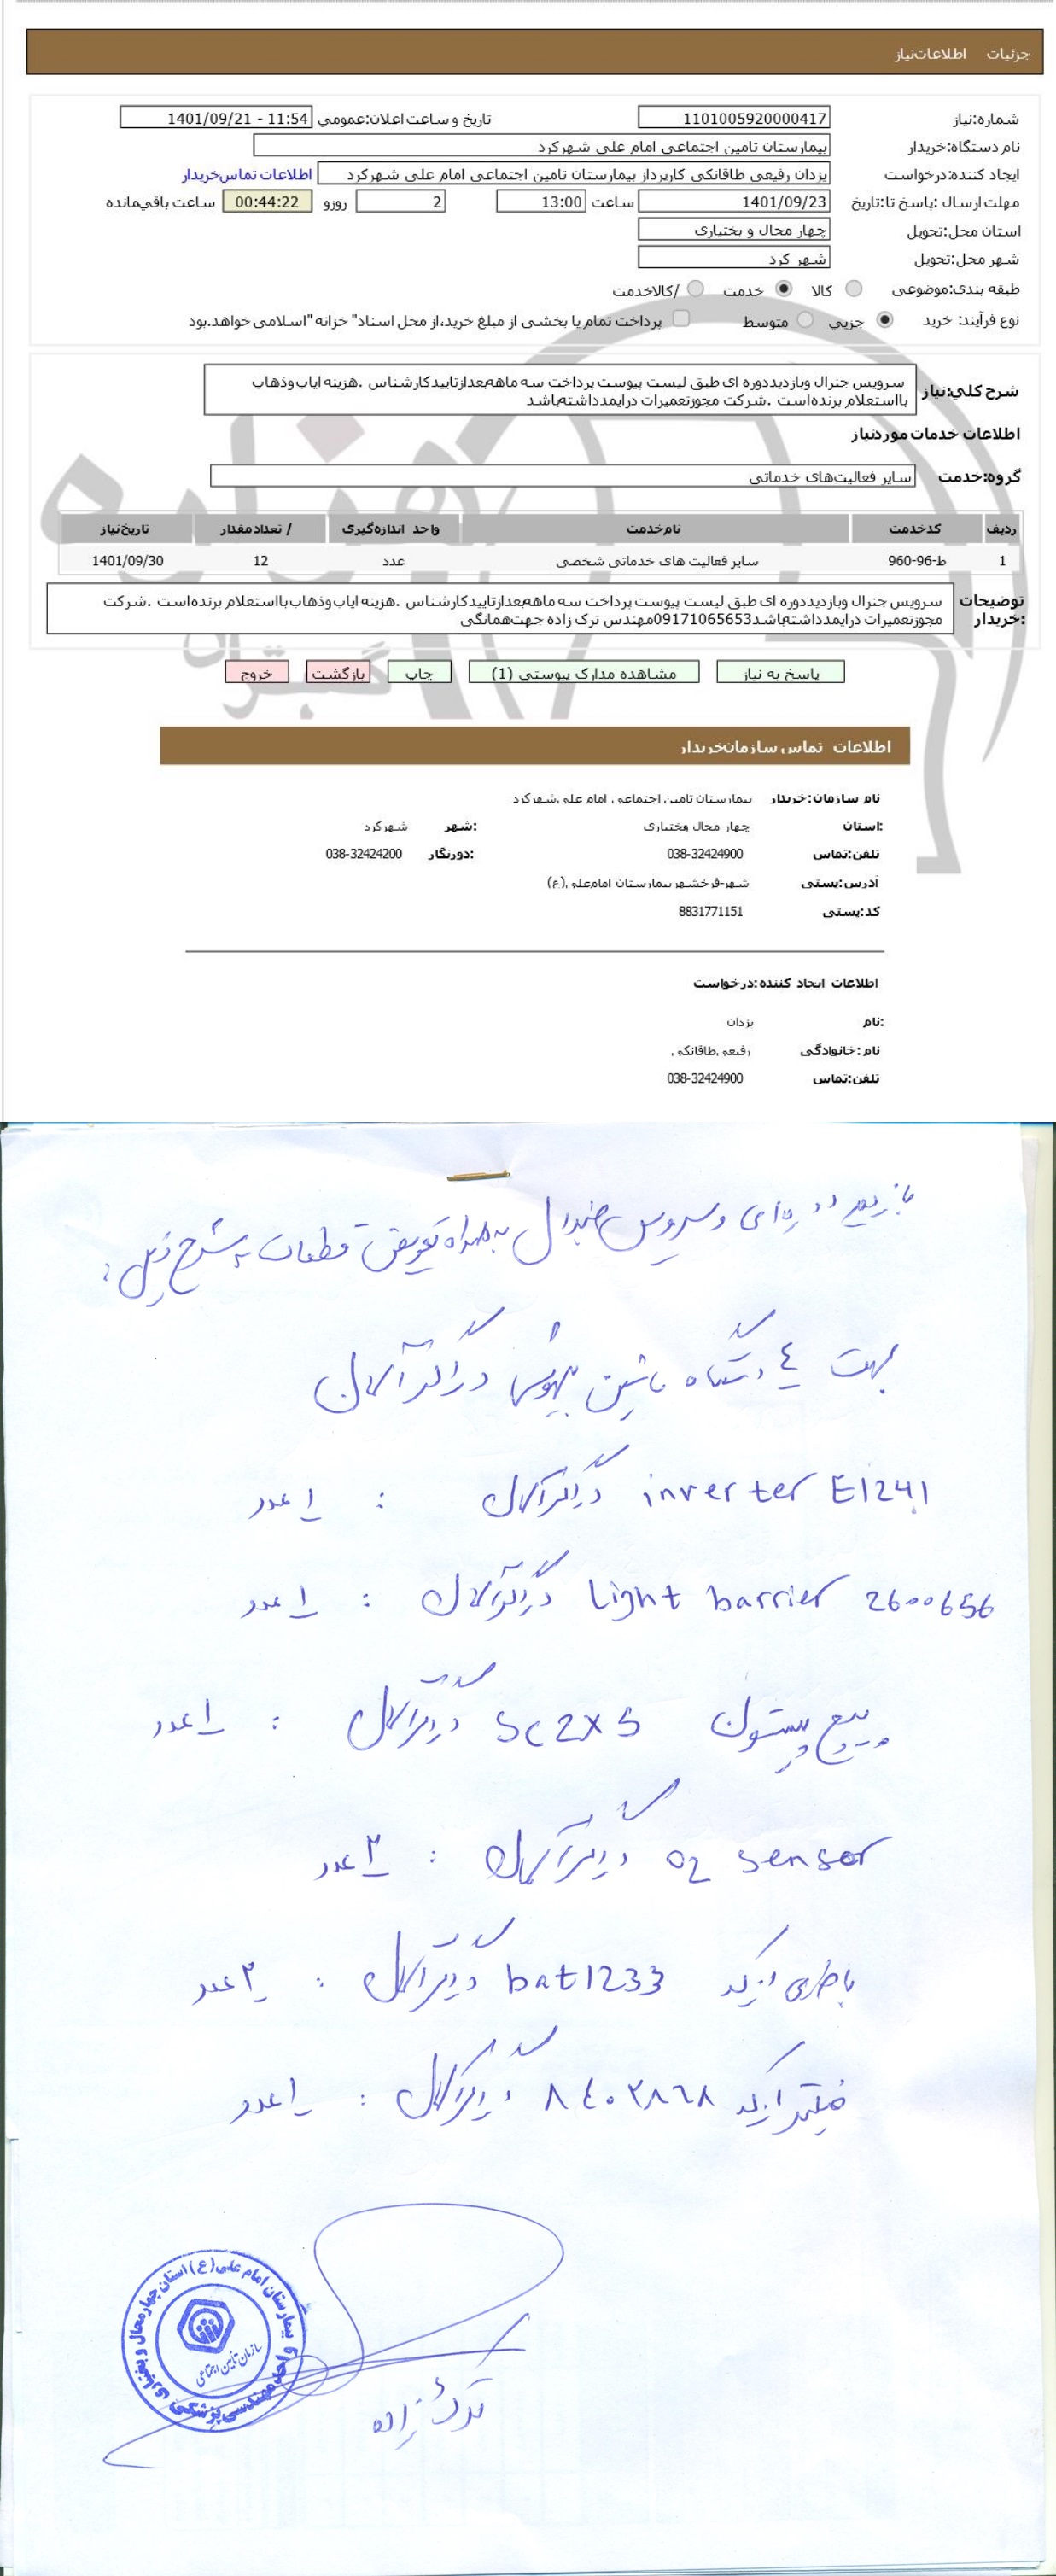 جزئیات اطلاعات نیاز
شماره نیاز: 1101005920000417 تاریخ و ساعت اعلان عمومي: 1401/09/21 - 11:54
نام دستگاه خریدار: بیمارستان تامین اجتماعی امام علی شهرکرد
ایجاد کننده درخواست: یزدان رفیعی طاقانکی کارپرداز بیمارستان تامین اجتماعی امام علی شهرکرد اطلاعات تماس خریدار
مهلت ارسال پاسخ تا: تاریخ: 1401/09/23 ساعت 13:00 2 روز و 00:44:22 ساعت باقی‌مانده
استان محل تحویل: چهار محال و بختیاری
شهر محل تحویل: شهر کرد
طبقه بندی موضوعی: کالا خدمت کالا/خدمت
نوع فرآیند خرید: جزیي متوسط پرداخت تمام یا بخشی از مبلغ خرید،از محل اسناد "خزانه اسلامی" خواهد بود.
شرح کلي نیاز: سرویس جنرال وبازدیددوره ای طبق لیست پیوست پرداخت سه ماهه‌بعدازتاییدکارشناس .هزینه ایاب‌وذهاب
بااستعلام برنده‌است .شرکت مجوزتعمیرات درایمدداشته‌باشد
اطلاعات خدمات مورد نیاز
گروه خدمت: سایر فعالیت‌های خدماتی
ردیف کد خدمت نام خدمت واحد اندازه‌گیری تعداد / مقدار تاریخ نیاز
1 ط-96-960 سایر فعالیت های خدماتی شخصی عدد 12 1401/09/30
توضیحات سرویس جنرال وبازدیددوره ای طبق لیست پیوست پرداخت سه ماهه‌بعدازتاییدکارشناس .هزینه ایاب‌وذهاب‌بااستعلام برنده‌است .شرکت
خریدار: مجوزتعمیرات درایمدداشته‌باشد09171065653مهندس ترک زاده جهت‌همانگی
پاسخ به نیاز مشاهده مدارک پیوستی (1) چاپ بازگشت خروج
اطلاعات تماس سازمان خریدار
نام سازمان خریدار: بیمارستان تامین اجتماعی امام علی شهرکرد
استان: چهار محال وبختیاری شهر: شهرکرد
تلفن تماس: 038-32424900 دورنگار: 038-32424200
آدرس پستی: شهر-فرخشهر بیمارستان امام‌علی (ع)
کد پستی: 8831771151
اطلاعات ایجاد کننده درخواست:
نام: یزدان
نام خانوادگی: رفیعی طاقانکی
تلفن تماس: 038-32424900
بازدید دوره‌ای و سرویس جنرال به همراه تعویض قطعات به شرح ذیل:
جهت ٤ دستگاه ماشین بیهوشی دراگر آلمان
inverter E1241 دراگر آلمان : ۱ عدد
Light barrier 2600656 دراگر آلمان : ۱ عدد
پیچ پیستون SC2X5 دراگر آلمان : ۱ عدد
O2 sensor دراگر آلمان : ۲ عدد
باطری از کد bat1233 دراگر آلمان : ۲ عدد
فیلتر از کد ۸٤۰۲۸٦۸ دراگر آلمان : ۱ عدد
ترک زاده
بیمارستان امام علی (ع) استان چهارمحال و بختیاری
سازمان تأمین اجتماعی
واحد مهندسی پزشکی